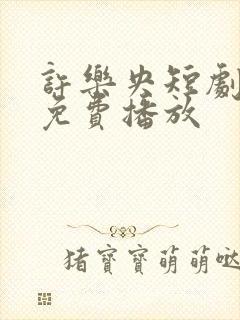 許樂央短劇
免費播放
猪寶寶萌萌哒